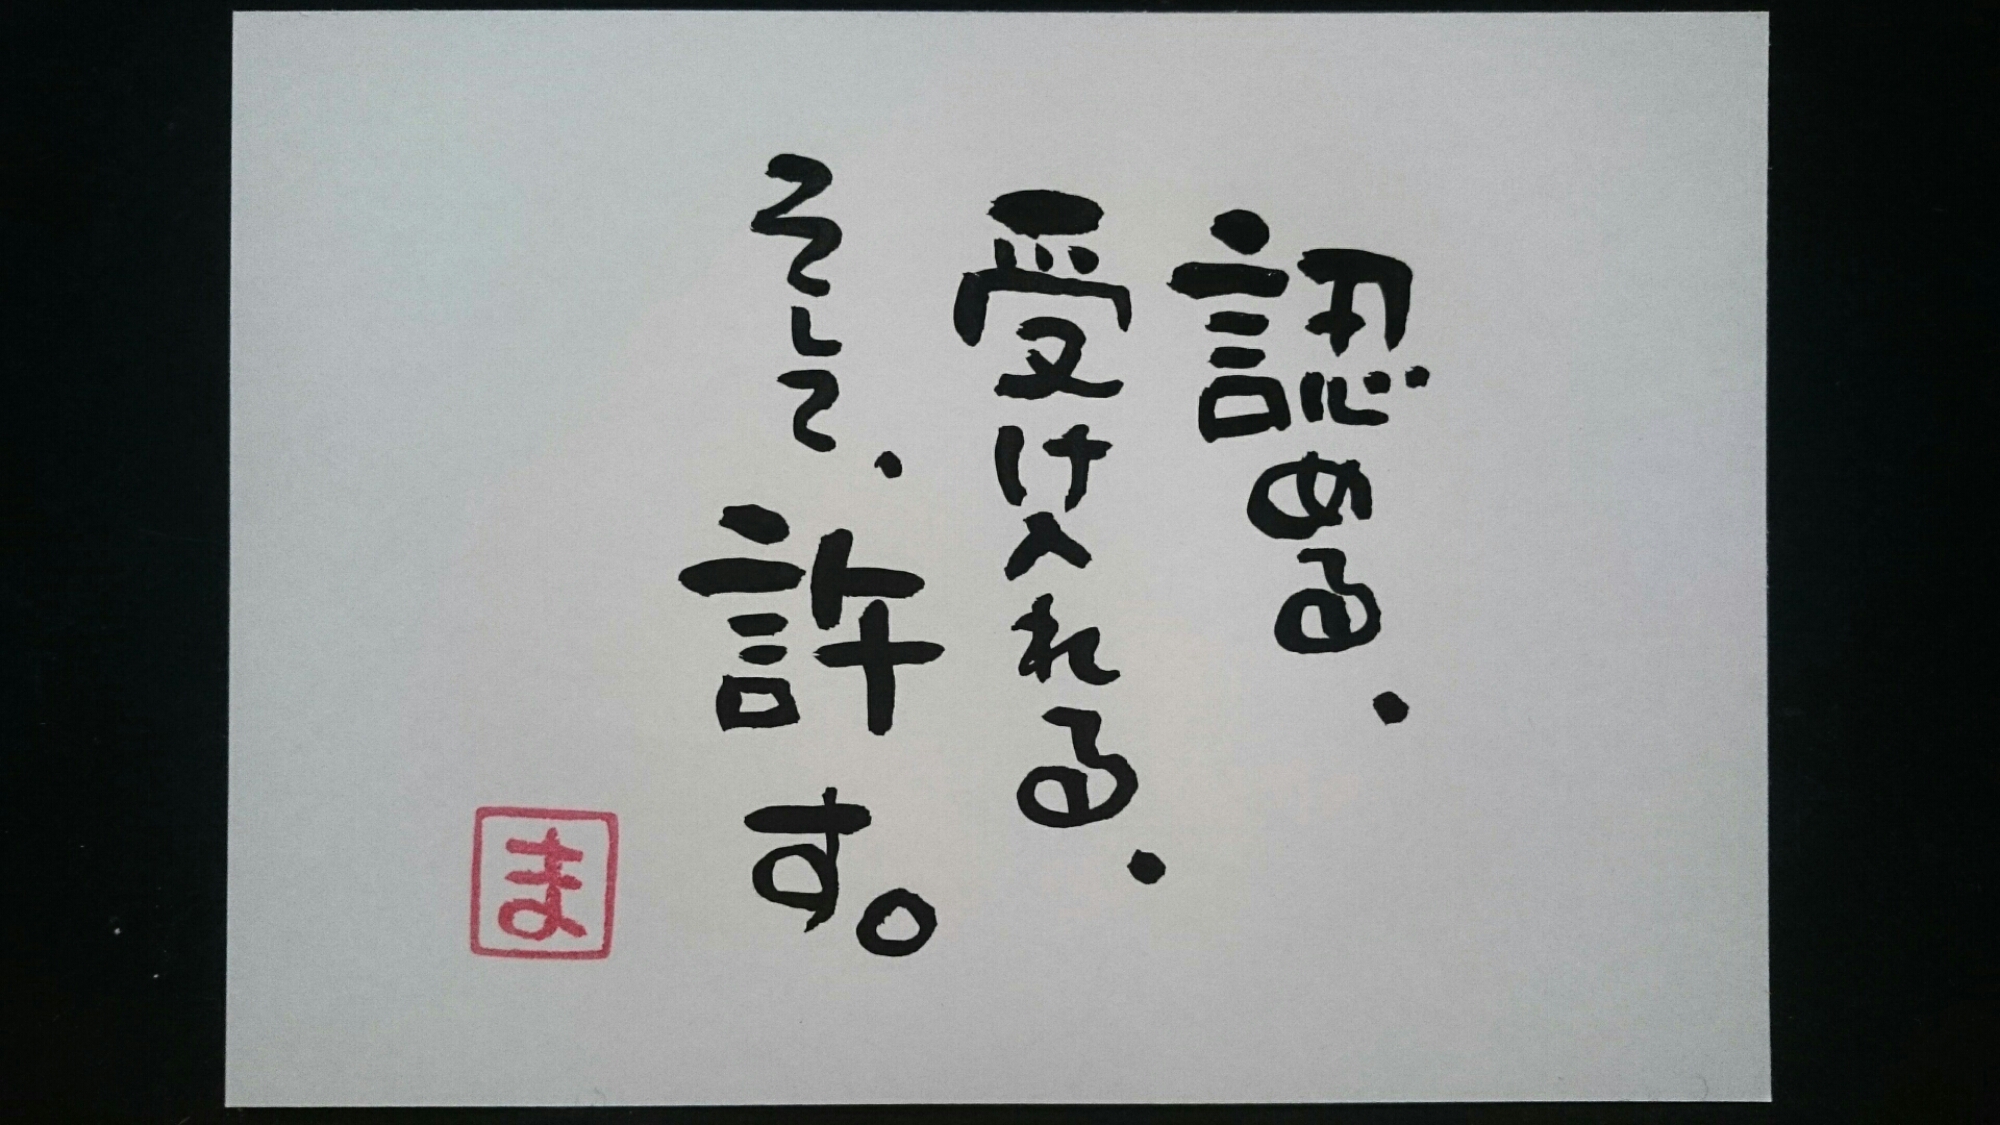 認める、
受け入れる、
そして、許す。
ま